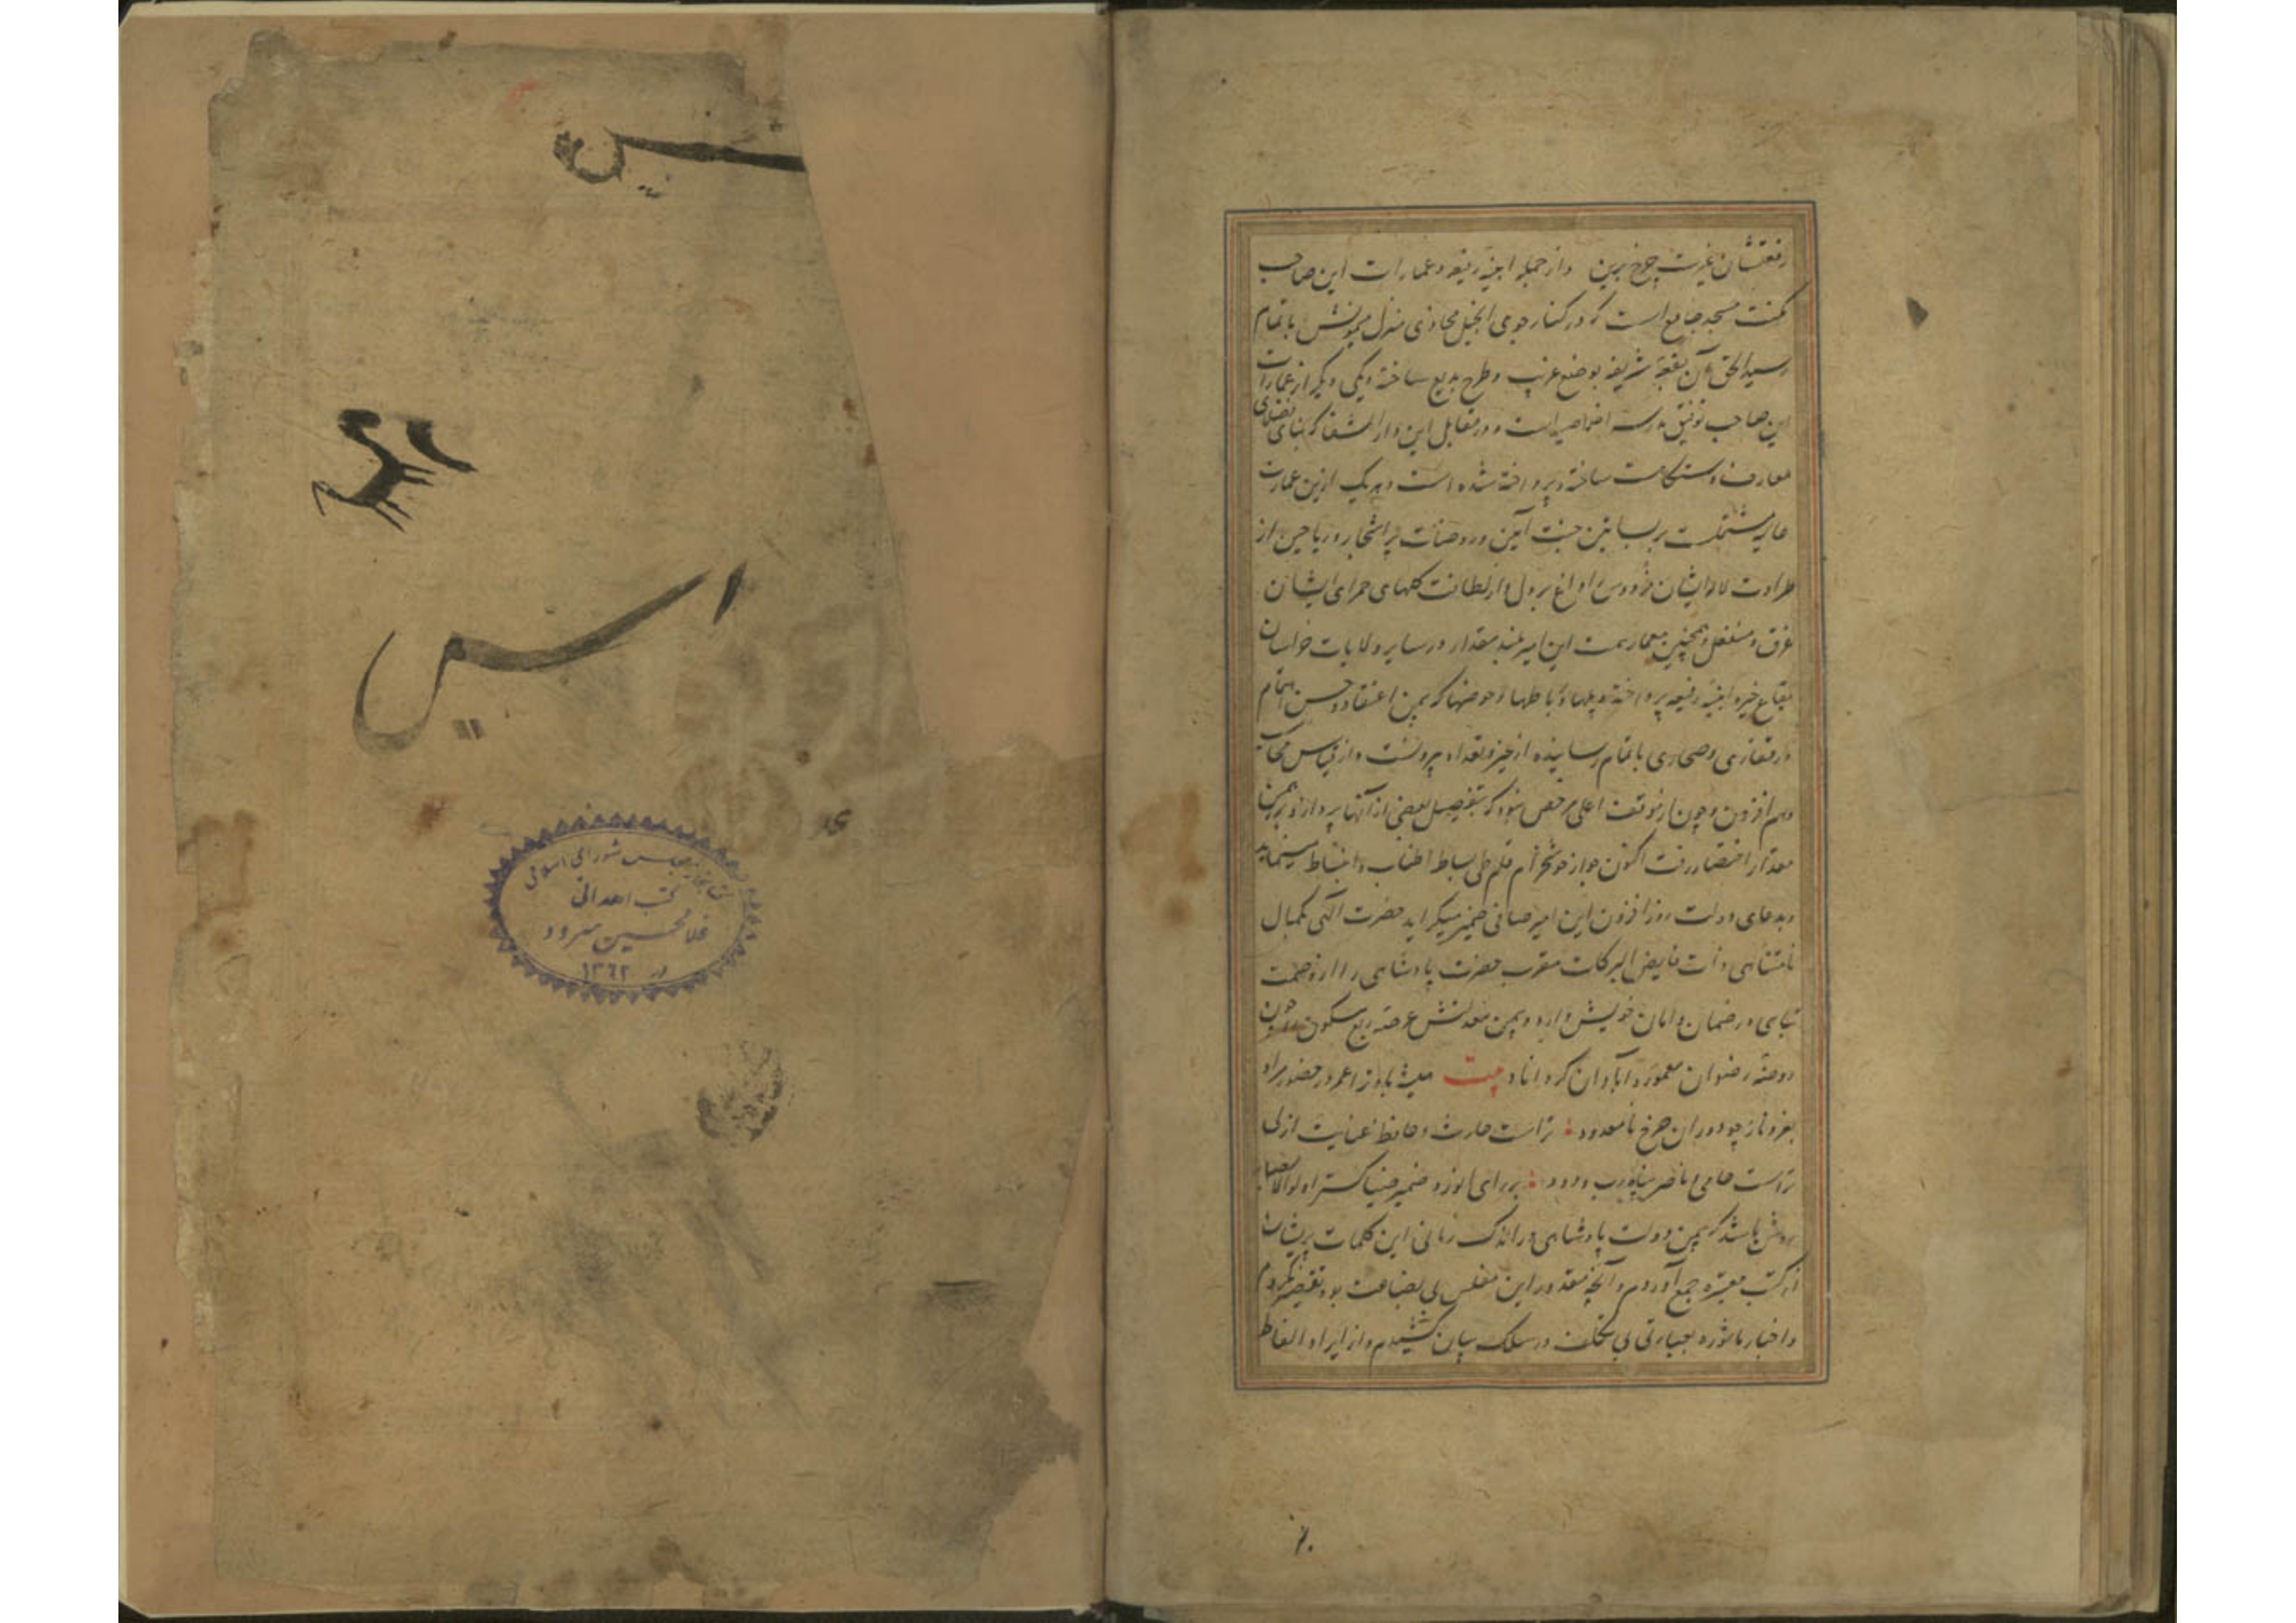 رفعتشان غیرت چرخ برین و از جمله ابنیه رفیعه و عمارات این صاحب
مکنت مسجد جامع است که در کنار جوی انجیل محاذی منزل میمونش باتمام
رسید الحق آن بقعه شریفه بوضع غریب و طرح بدیع ساخته و یکی دیگر از عمارات
این صاحب توفیق مدرسه اخلاصیه است و در مقابل این دار الشفا که
معارف دستگاهست ساخته و پرداخته شده است و هر یک ازین عمارت
عالیه مشتملست بر بساتین جنت آیین و روضات پر اشجار و ریاحین از
طراوت لالهاشان فردوس را داغ بر دل و از لطافت گلهای حمرای ایشان
غرق و منفعل و همچنین معمار همت این امیر بلند مقدار در سایر ولایات خراسان
بقاع خیر و ابنیه رفیعه پرداخته و پلها و رباطها و حوضها که بیمن اعتقاد و حسن اهتمام
در مفازی و صحاری باتمام رسانیده از حیز تعداد بیرونست و از قیاس محاسب
وهم افزون و چون از موقف اعلی مرخص نبود که بتفصیل بعضی از آنها پردازد برهمین
مقدار اختصار رفت اکنون جواد خوشخرام قلم طی بساط اطناب و انبساط مینماید
و بدعای دولت روز افزون این امیر صافی ضمیر میگراید حضرت الهی بکمال
نامتناهی ذات فایض البرکات مقرب حضرت پادشاهی را از وصمت
تباهی در ضمان و امان خویش دارد و بیمن معدلتش عرصه ربع مسکون را چون
روضه رضوان معمور و آبادان گرداناد بیت همیشه باد ز اعمر در حضور مراد
بعز و ناز چو دوران چرخ نامعدود تراست حارث و حافظ عنایت ازلی
تراست حامی و ناصر پناه رب ودود بر رای انور و ضمیر ضیا گستر اولوالالباب
روشن باشد که بیمن دولت پادشاهی در اندک زمانی این کلمات پریشان
از کتب معتبره جمع آوردم و آنچه مقدور این مفلس بی بضاعت بود تقصیر نکردم
و اخبار ماثوره بعبارتی بی تکلف در سلک بیان کشیدم و از ایراد الفاظ
کتابخانه مجلس شورای اسلامی
کتب اهدائی
غلامحسین سرود
در ۱۳۶۲